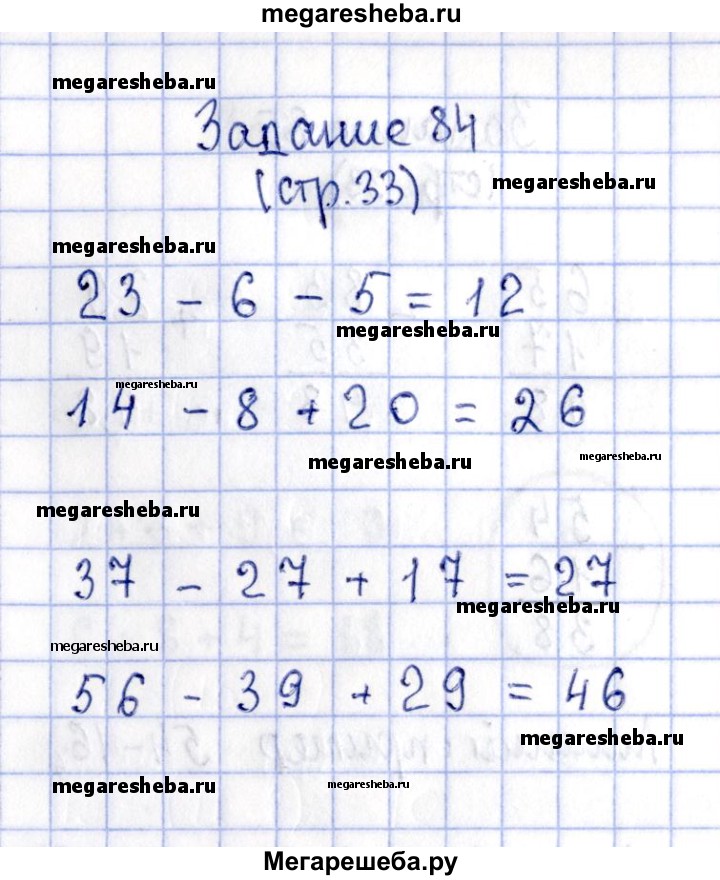 megaresheba.ru
megaresheba.ru
Задание 84
(стр.33)
megaresheba.ru
megaresheba.ru
23 - 6 - 5 = 12
megaresheba.ru
megaresheba.ru
14 - 8 + 20 = 26
megaresheba.ru
megaresheba.ru
megaresheba.ru
37 - 27 + 17 = 27
megaresheba.ru
megaresheba.ru
56 - 39 + 29 = 46
megaresheba.ru
megaresheba.ru
Мегарешеба.ру